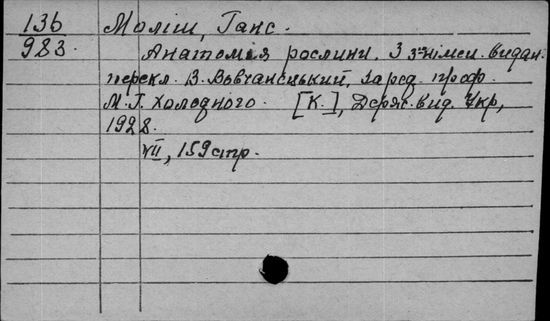 136
983.
Моліш, Ганс.
Анатомія рослини. З 3 німец. видан.
перекл. В. Вовчанецький, заред. проф.
М. Г. Холодного. [К.], Держ. вид. Укр,
1928.
VII, 159 стр.